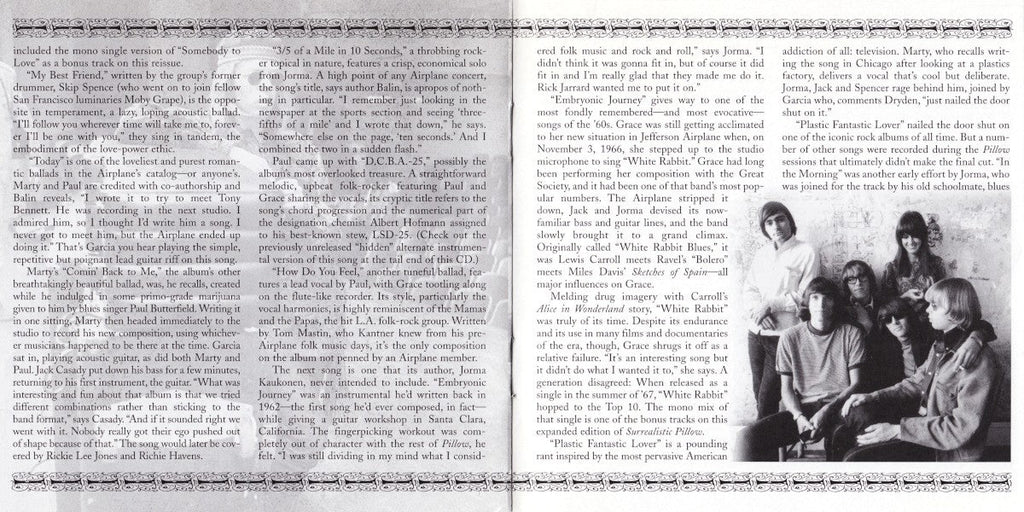 included the mono single version of "Somebody to
Love" as a bonus track on this reissue.
"My Best Friend," written by the group's former
drummer, Skip Spence (who went on to join fellow
San Francisco luminaries Moby Grape), is the oppo-
site in temperament, a lazy, loping acoustic ballad.
"I'll follow you wherever time will take me to, forev-
er I'll be one with you," they sing in tandem, the
embodiment of the love-power ethic.
"Today" is one of the loveliest and purest roman-
tic ballads in the Airplane's catalog—or anyone's.
Marty and Paul are credited with co-authorship and
Balin reveals, "I wrote it to try to meet Tony
Bennett. He was recording in the next studio. I
admired him, so I thought I'd write him a song. I
never got to meet him, but the Airplane ended up
doing it." That's Garcia you hear playing the simple,
repetitive but poignant lead guitar riff on this song.
Marty's "Comin' Back to Me," the album's other
breathtakingly beautiful ballad, was, he recalls, created
while he indulged in some primo-grade marijuana
given to him by blues singer Paul Butterfield. Writing it
in one sitting, Marty then headed immediately to the
studio to record his new composition, using whichev-
er musicians happened to be there at the time. Garcia
sat in, playing acoustic guitar, as did both Marty and
Paul. Jack Casady put down his bass for a few minutes,
returning to his first instrument, the guitar. "What was
interesting and fun about that album is that we tried
different combinations rather than sticking to the
band format," says Casady. "And if it sounded right we
went with it. Nobody really got their ego pushed out
of shape because of that." The song would later be cov-
ered by Rickie Lee Jones and Richie Havens.
"3/5 of a Mile in 10 Seconds," a throbbing rock-
er topical in nature, features a crisp, economical solo
from Jorma. A high point of any Airplane concert,
the song's title, says author Balin, is apropos of noth-
ing in particular. "I remember just looking in the
newspaper at the sports section and seeing 'three-
fifths of a mile' and I wrote that down," he says.
"Somewhere else on the page, 'ten seconds.' And I
combined the two in a sudden flash."
Paul came up with "D.C.B.A.-25," possibly the
album's most overlooked treasure. A straightforward
melodic, upbeat folk-rocker featuring Paul and
Grace sharing the vocals, its cryptic title refers to the
song's chord progression and the numerical part of
the designation chemist Albert Hofmann assigned
to his best-known stew, LSD-25. (Check out the
previously unreleased "hidden" alternate instrumen-
tal version of this song at the tail end of this CD.)
"How Do You Feel," another tuneful ballad, fea-
tures a lead vocal by Paul, with Grace tootling along
on the flute-like recorder. Its style, particularly the
vocal harmonies, is highly reminiscent of the Mamas
and the Papas, the hit L.A. folk-rock group. Written
by Tom Mastin, who Kantner knew from his pre-
Airplane folk music days, it's the only composition
on the album not penned by an Airplane member.
The next song is one that its author, Jorma
Kaukonen, never intended to include. "Embryonic
Journey" was an instrumental he'd written back in
1962—the first song he'd ever composed, in fact—
while giving a guitar workshop in Santa Clara,
California. The fingerpicking workout was com-
pletely out of character with the rest of Pillow, he
felt. "I was still dividing in my mind what I consid-
ered folk music and rock and roll," says Jorma. "I
didn't think it was gonna fit in, but of course it did
fit in and I'm really glad that they made me do it.
Rick Jarrard wanted me to put it on."
"Embryonic Journey" gives way to one of the
most fondly remembered—and most evocative—
songs of the '60s. Grace was still getting acclimated
to her new situation in Jefferson Airplane when, on
November 3, 1966, she stepped up to the studio
microphone to sing "White Rabbit." Grace had long
been performing her composition with the Great
Society, and it had been one of that band's most pop-
ular numbers. The Airplane stripped it
down, Jack and Jorma devised its now-
familiar bass and guitar lines, and the band
slowly brought it to a grand climax.
Originally called "White Rabbit Blues," it
was Lewis Carroll meets Ravel's "Bolero"
meets Miles Davis' Sketches of Spain—all
major influences on Grace.
Melding drug imagery with Carroll's
Alice in Wonderland story, "White Rabbit"
was truly of its time. Despite its endurance
and its use in many films and documentaries
of the era, though, Grace shrugs it off as a
relative failure. "It's an interesting song but
it didn't do what I wanted it to," she says. A
generation disagreed: When released as a
single in the summer of '67, "White Rabbit"
hopped to the Top 10. The mono mix of
that single is one of the bonus tracks on this
expanded edition of Surrealistic Pillow.
"Plastic Fantastic Lover" is a pounding
rant inspired by the most pervasive American
addiction of all: television. Marty, who recalls writ-
ing the song in Chicago after looking at a plastics
factory, delivers a vocal that's cool but deliberate.
Jorma, Jack and Spencer rage behind him, joined by
Garcia who, comments Dryden, "just nailed the door
shut on it."
"Plastic Fantastic Lover" nailed the door shut on
one of the iconic rock albums of all time. But a num-
ber of other songs were recorded during the Pillow
sessions that ultimately didn't make the final cut. "In
the Morning" was another early effort by Jorma, who
was joined for the track by his old schoolmate, blues